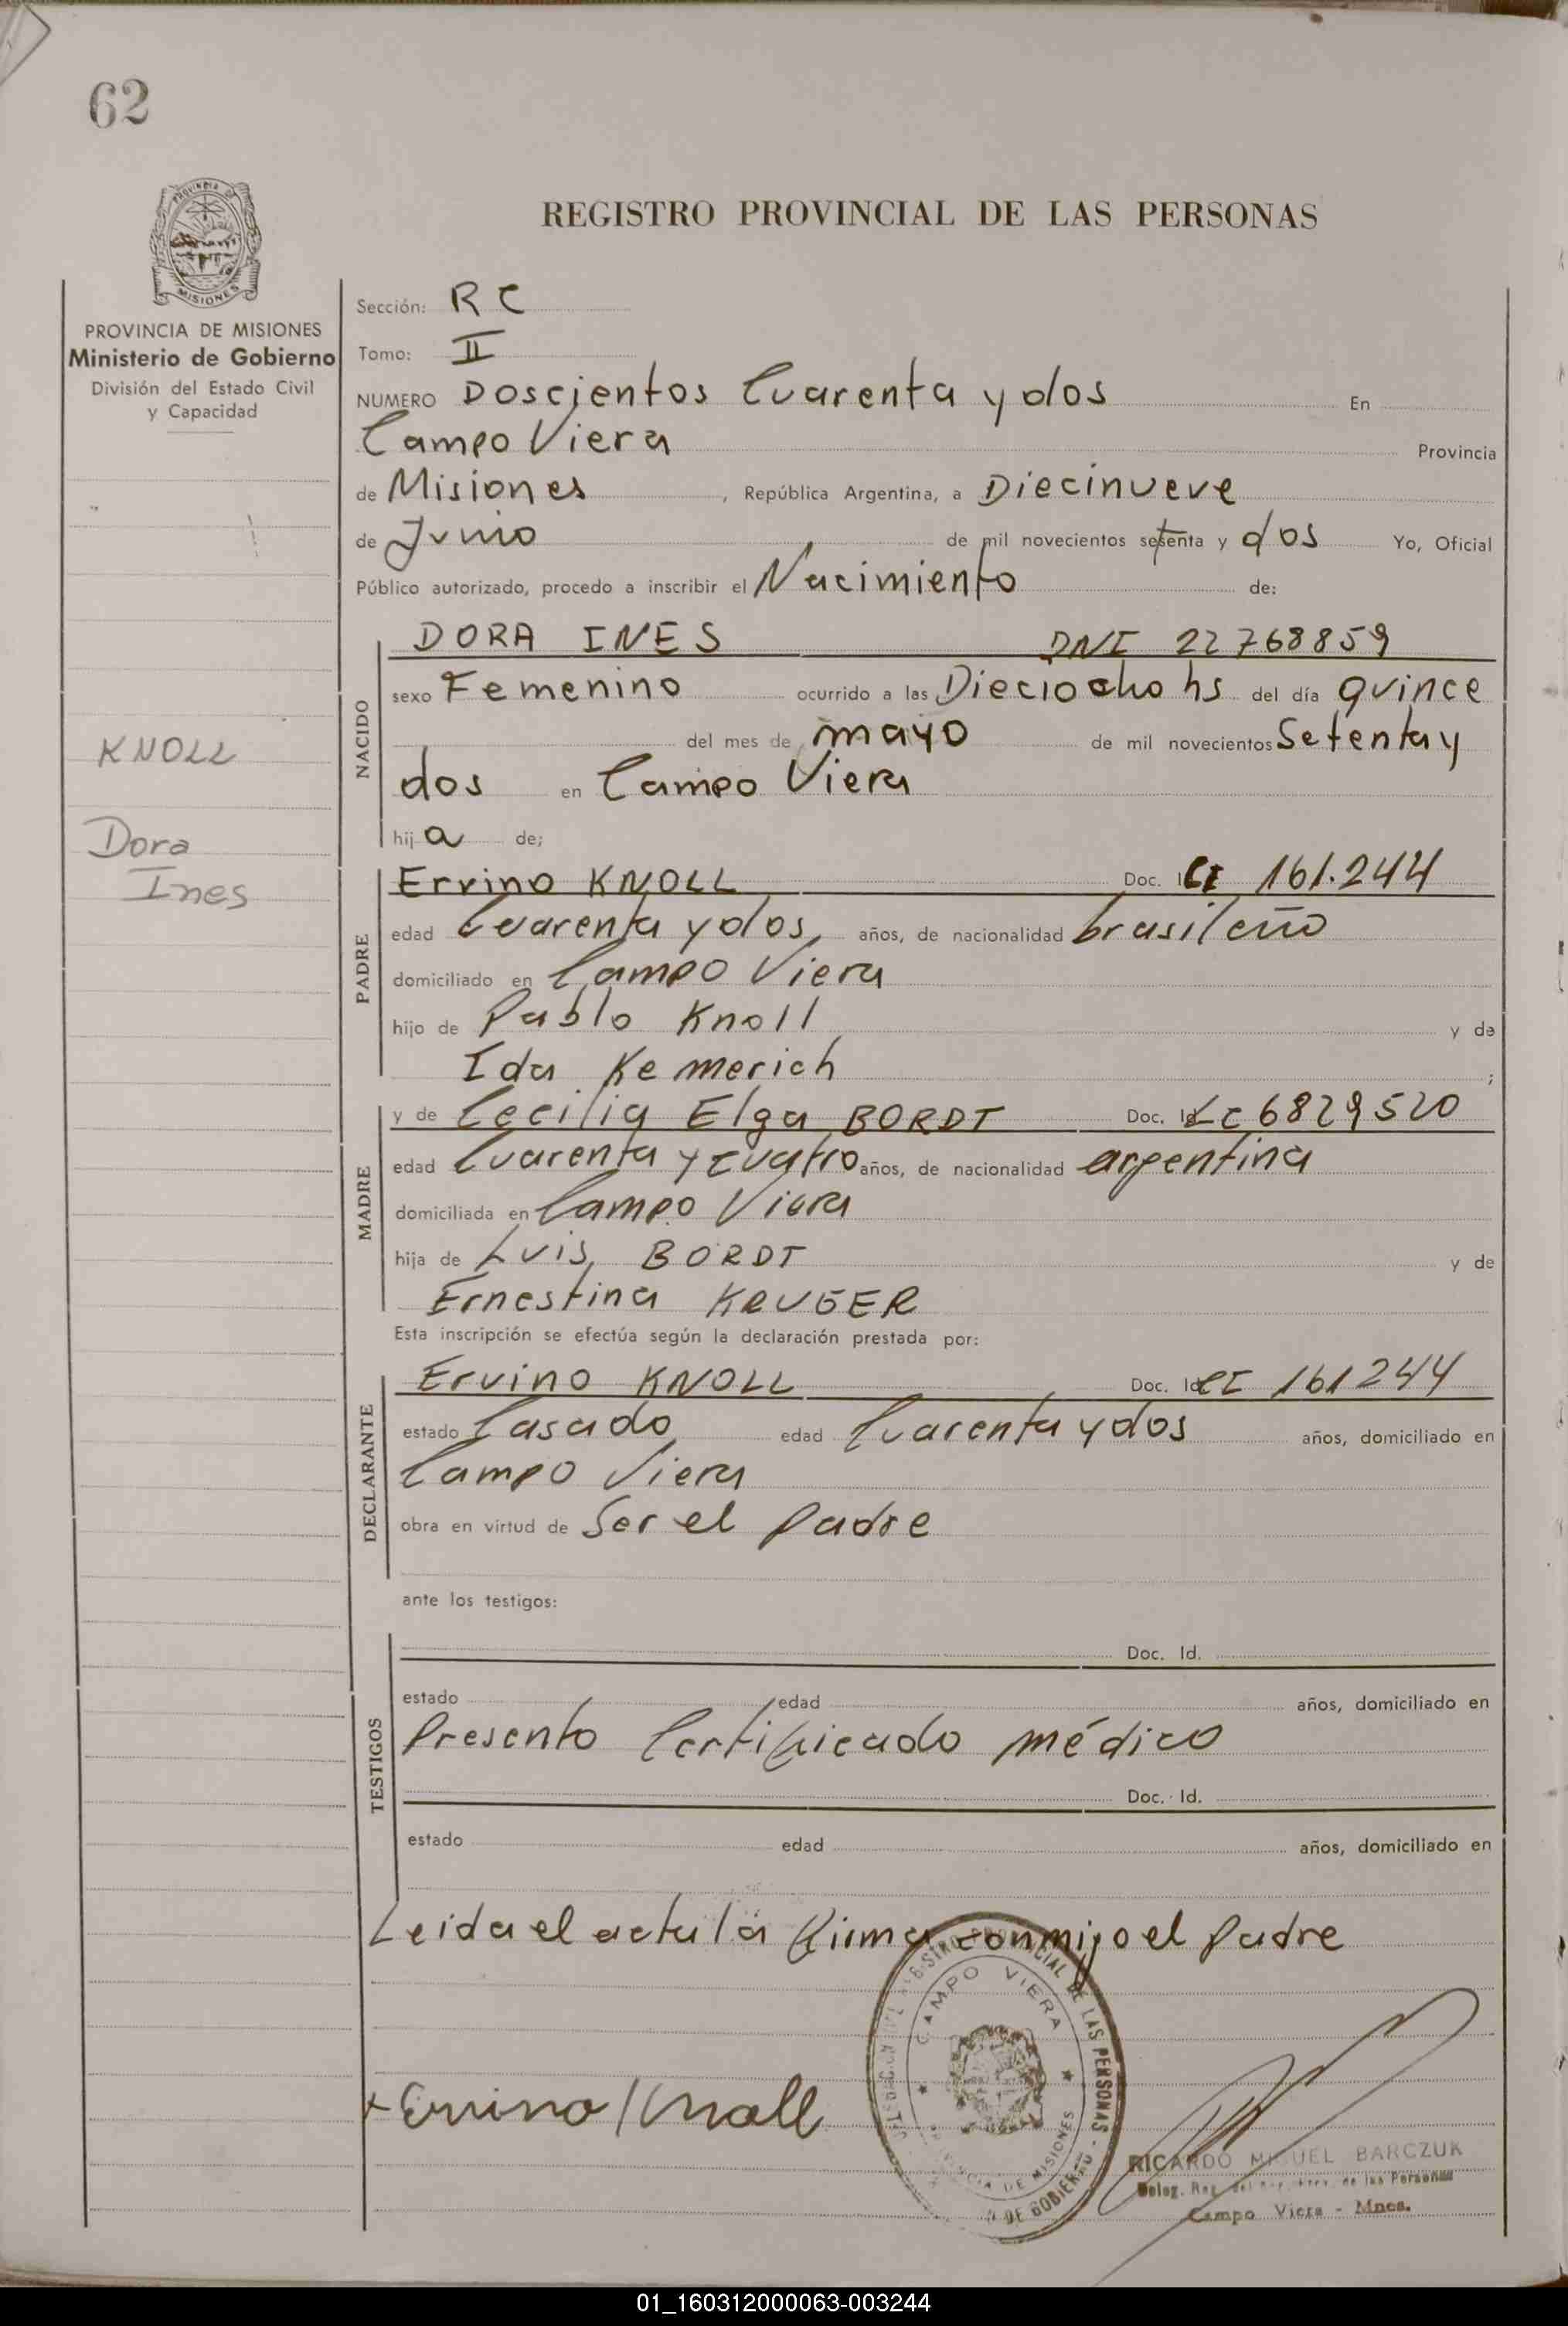 62
PROVINCIA DE
MISIONES
PROVINCIA DE MISIONES
Ministerio de Gobierno
División del Estado Civil
y Capacidad
KNOLL
Dora
Ines
REGISTRO PROVINCIAL DE LAS PERSONAS
Sección: RC
Tomo: II
NUMERO Doscientos Cuarenta y dos En
Campo Viera Provincia
de Misiones, República Argentina, a Diecinueve
de Junio de mil novecientos setenta y dos Yo, Oficial
Público autorizado, procedo a inscribir el Nacimiento de:
NACIDO
DORA INES DNI 22768859
sexo Femenino ocurrido a las Dieciocho hs del día quince
del mes de mayo de mil novecientos Setenta y
dos en Campo Viera
hija de;
PADRE
Ervino KNOLL Doc. I CI 161.244
edad Cuarenta y dos, años, de nacionalidad brasileño
domiciliado en Campo Viera
hijo de Pablo Knoll y de
Ida Kemerich ;
MADRE
y de Cecilia Elga BORDT Doc. Id LC 6829520
edad Cuarenta y cuatro años, de nacionalidad argentina
domiciliada en Campo Viera
hija de Luis BORDT y de
Ernestina KRUGER
Esta inscripción se efectúa según la declaración prestada por:
DECLARANTE
Ervino KNOLL Doc. Id CI 161244
estado Casado edad Cuarenta y dos años, domiciliado en
Campo Viera
obra en virtud de Ser el Padre
ante los testigos:
TESTIGOS
Doc. Id.
estado edad años, domiciliado en
Presento Certificado médico
Doc. Id.
estado edad años, domiciliado en
Leida el acta la firma conmigo el Padre
Ervino Knoll
REGISTRO PROVINCIAL DE LAS PERSONAS
CAMPO VIERA
PROVINCIA DE MISIONES
DE GOBIERNO
RICARDO MIGUEL BARCZUK
Deleg. Reg. del Reg. Prov. de las Personas
Campo Viera - Mnes.
01_160312000063-003244